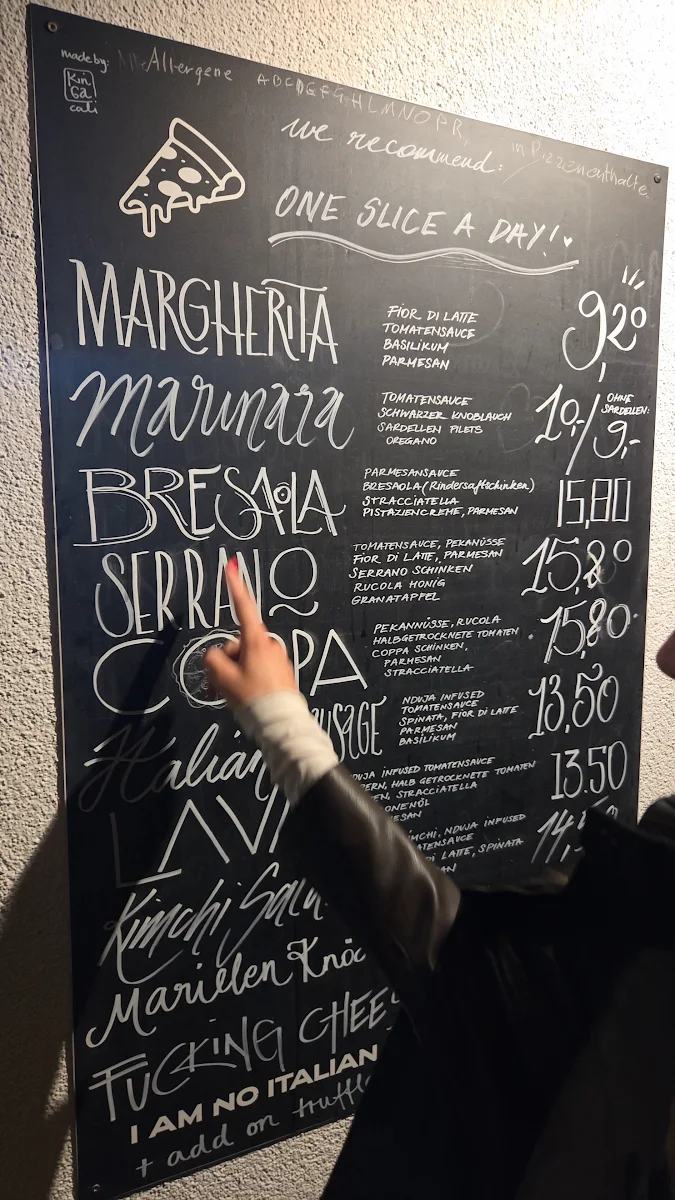 made by:
Kin
Ga
cali
Allergene ABCDEFGHLMNOPR, in Pizzen enthalten
we recommend:
ONE SLICE A DAY!
MARGHERITA
FIOR DI LATTE
TOMATENSAUCE
BASILIKUM
PARMESAN
9,20
marinara
TOMATENSAUCE
SCHWARZER KNOBLAUCH
SARDELLEN FILETS
OREGANO
10,-/
OHNE
SARDELLEN:
9,-
BRESAOLA
PARMESANSAUCE
BRESAOLA (Rindersaftschinken)
STRACCIATELLA
PISTAZIENCREME, PARMESAN
15,80
SERRANO
TOMATENSAUCE, PEKANÜSSE
FIOR DI LATTE, PARMESAN
SERRANO SCHINKEN
RUCOLA HONIG
GRANATAPFEL
15,80
COPPA
PEKANNÜSSE, RUCOLA
HALBGETROCKNETE TOMATEN
COPPA SCHINKEN,
PARMESAN
STRACCIATELLA
15,80
Italian
USAGE
NDUJA INFUSED
TOMATENSAUCE
SPINATA, FIOR DI LATTE
PARMESAN
BASILIKUM
13,50
LAVI
DUJA INFUSED TOMATENSAUCE
PERN, HALB GETROCKNETE TOMATEN
EN, STRACCIATELLA
ONENÖL
ESAN
13.50
Kimchi
IMCHI, NDUJA INFUSED
ATENSAUCE
DI LATTE, SPINATA
AN
14,
Marillen Knö
FUCKING CHEES
I AM NO ITALIAN
+ add on truffl